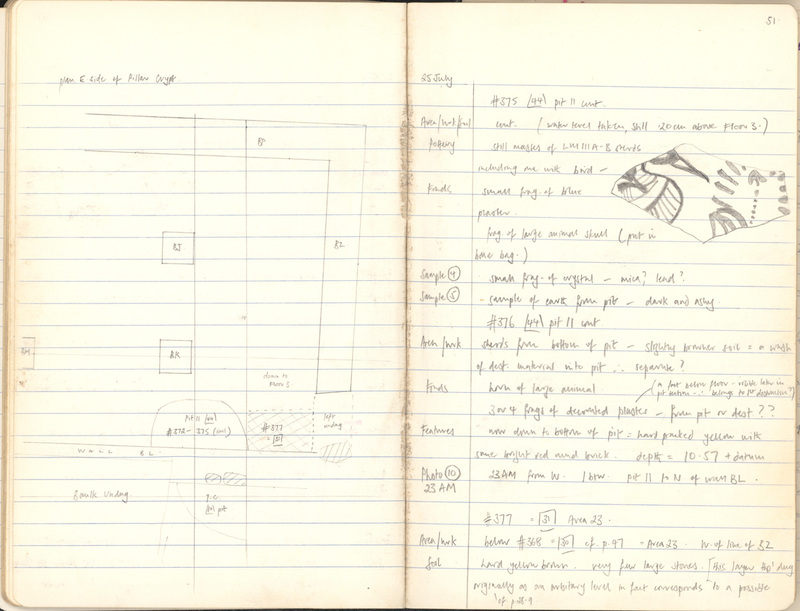 plan E side of Pillar Crypt
BJ
BZ
BK
down to
Floor 3
left
undug
Pit 11 44
#372 - 375 (cont)
#377
= 31
WALL BL
Baulk Undug
pit
51
25 July
#375 44 pit 11 cont.
Area/work/find cont. (water level taken, still 20cm above Floor 3.)
Pottery still masses of LM IIIA-B sherds
including one with bird –
Finds small frag. of blue
plaster.
frag of large animal skull (put in
bone bag.)
Sample 4 small frag. of crystal – mica? lead?
Sample 5 – sample of earth from pit – dark and ashy.
#376 44 pit 11 cont
Area/work sherds from bottom of pit – slightly browner soil = a wash
of dest. material into pit ∴ separate?
Finds horn of large animal
3 or 4 frags of decorated plaster – from pit or dest??
Features now down to bottom of pit = hard packed yellow with
some bright red mud brick. depth = 10.57 + datum
Photo 10 23AM from W. 1 btw. pit 11 to N of wall BL.
23AM
#377 = 31 Area 23.
Area/work below #368 = 30 cf. p.47 = Area 23. W. of line of BZ
Soil hard yellow brown. very few large stones. [this layer tho' dug
originally as an arbitrary level in fact corresponds to a possible
cf p.28-9